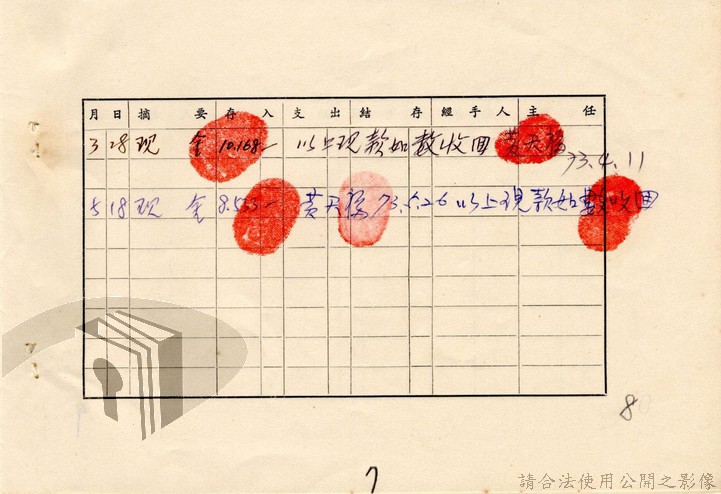 月 日 摘 要 存 入 支 出 結 存 經 手 人 主 任
3 28 现 金 10.168- 以上现款如數收回 黃天福
73.4.11
5 18 现 金 8.533- 黃天福 73.5.26 以上現款如數收回
8
7
請合法使用公開之影像